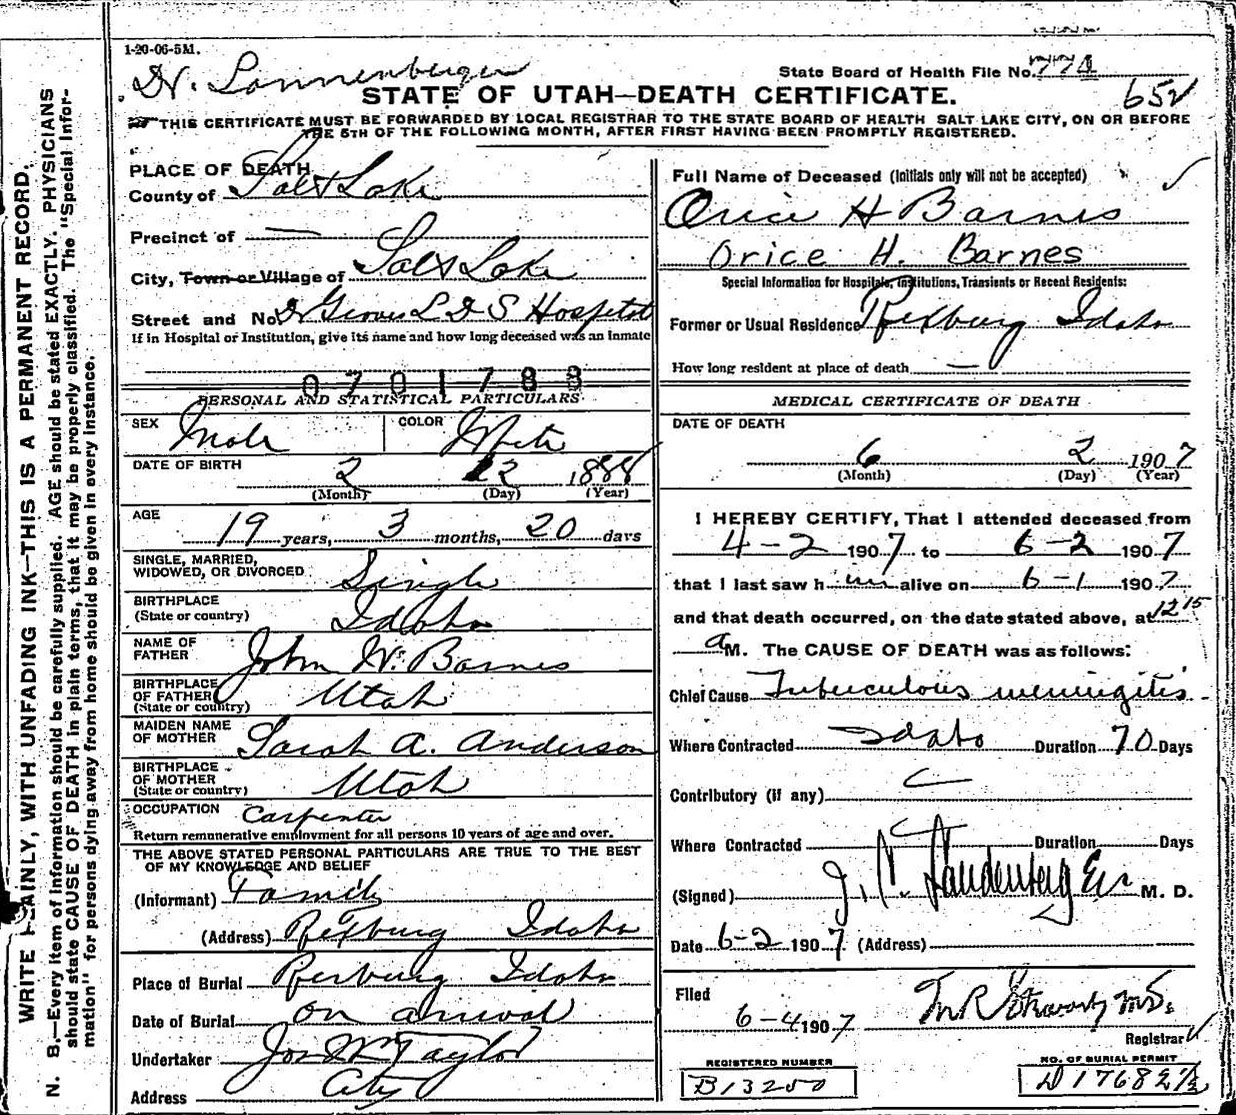 1-20-06-5M.
State Board of Health File No. 774
STATE OF UTAH—DEATH CERTIFICATE.
652
THIS CERTIFICATE MUST BE FORWARDED BY LOCAL REGISTRAR TO THE STATE BOARD OF HEALTH SALT LAKE CITY, ON OR BEFORE
THE 5TH OF THE FOLLOWING MONTH, AFTER FIRST HAVING BEEN PROMPTLY REGISTERED.
WRITE PLAINLY, WITH UNFADING INK—THIS IS A PERMANENT RECORD.
N. B.—Every item of information should be carefully supplied. AGE should be stated EXACTLY. PHYSICIANS
should state CAUSE OF DEATH in plain terms, that it may be properly classified. The "Special Infor-
mation" for persons dying away from home should be given in every instance.
PLACE OF DEATH
County of Salt Lake
Precinct of —
City, Town or Village of Salt Lake
Street and No. Dr Groves L D S Hospital
If in Hospital or Institution, give its name and how long deceased was an inmate
0701788
PERSONAL AND STATISTICAL PARTICULARS
SEX Male COLOR White
DATE OF BIRTH 2 12 1888
(Month) (Day) (Year)
AGE 19 years, 3 months, 20 days
SINGLE, MARRIED,
WIDOWED, OR DIVORCED Single
BIRTHPLACE
(State or country) Idaho
NAME OF
FATHER John W. Barnes
BIRTHPLACE
OF FATHER
(State or country) Utah
MAIDEN NAME
OF MOTHER Sarah A. Anderson
BIRTHPLACE
OF MOTHER
(State or country) Utah
OCCUPATION Carpenter
Return remunerative employment for all persons 10 years of age and over.
THE ABOVE STATED PERSONAL PARTICULARS ARE TRUE TO THE BEST
OF MY KNOWLEDGE AND BELIEF
(Informant) Family
(Address) Rexburg Idaho
Place of Burial Rexburg Idaho
Date of Burial on arrival
Undertaker Jos Wm Taylor
Address City
Full Name of Deceased (Initials only will not be accepted)
Orice H Barnes
Orice H. Barnes
Special Information for Hospitals, Institutions, Transients or Recent Residents:
Former or Usual Residence Rexburg Idaho
How long resident at place of death —
MEDICAL CERTIFICATE OF DEATH
DATE OF DEATH
6 2 1907
(Month) (Day) (Year)
I HEREBY CERTIFY, That I attended deceased from
4-2 1907 to 6-2 1907
that I last saw him alive on 6-1 1907
and that death occurred, on the date stated above, at 12 15
a M. The CAUSE OF DEATH was as follows:
Chief Cause Tuberculous meningitis
Where Contracted Idaho Duration 70 Days
Contributory (if any)
Where Contracted Duration Days
(Signed) M. D.
Date 6-2 1907. (Address)
Filed
6-4 1907
Registrar
REGISTERED NUMBER
B13250
NO. OF BURIAL PERMIT